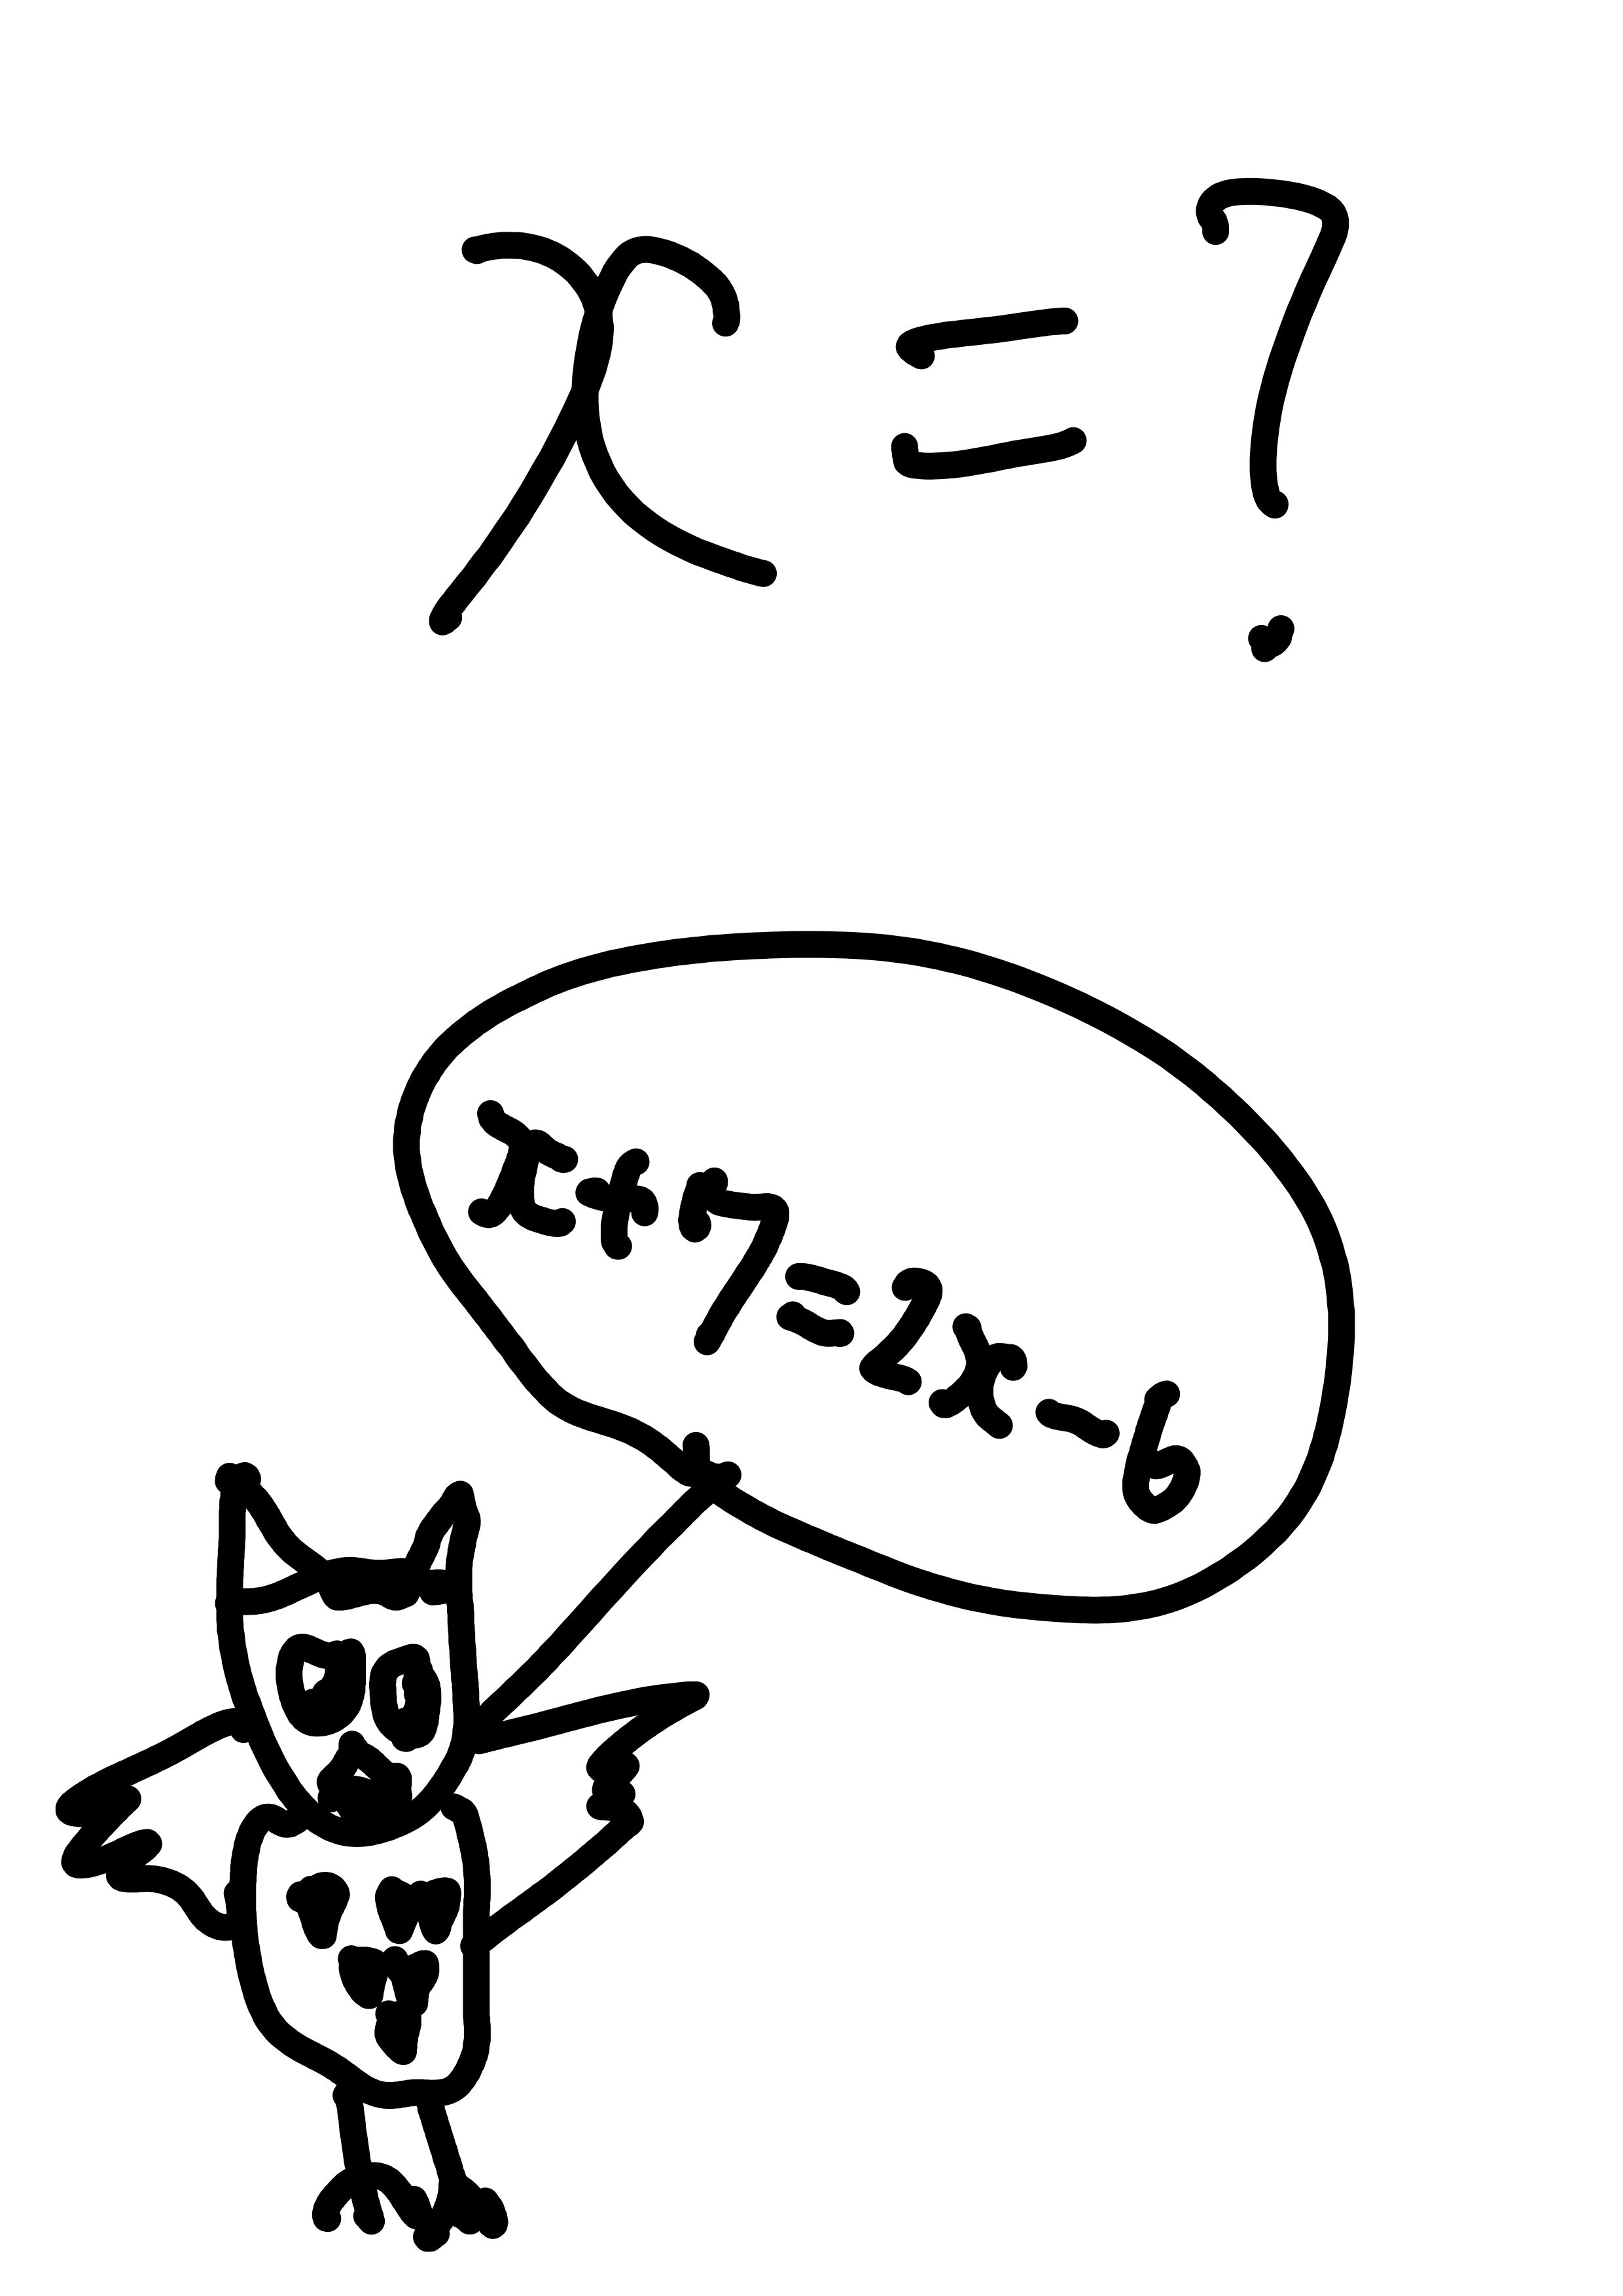 x=?
x+7=2x-6